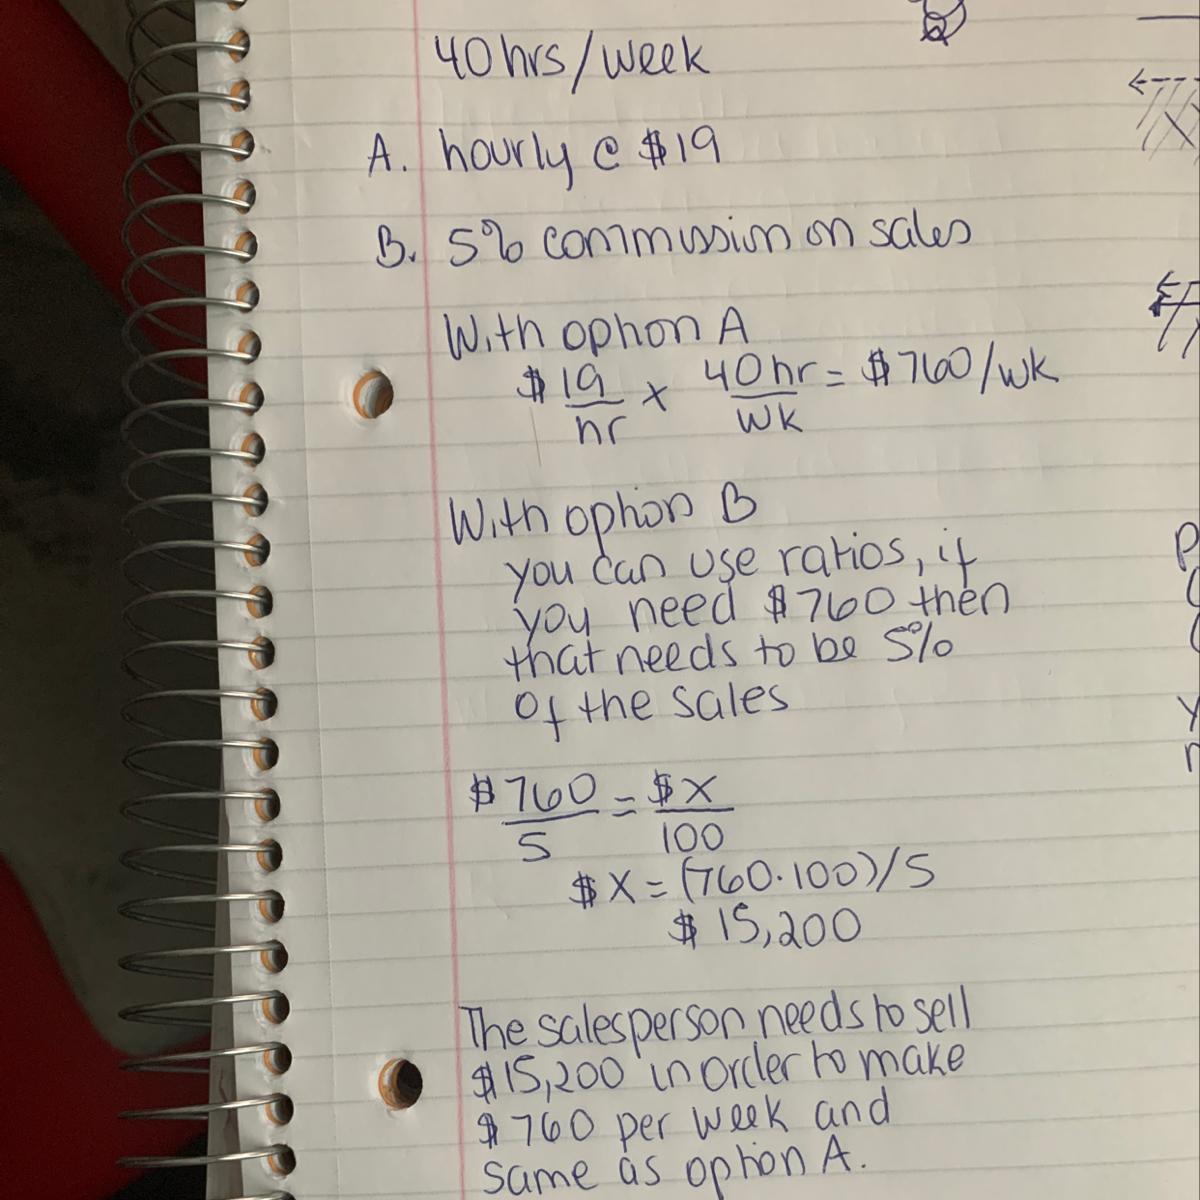 40 hrs/week
A. hourly @ $19
B. 5% commission on sales
With option A
$19/hr x 40hr/wk = $760/wk
With option B
you can use ratios, if
you need $760 then
that needs to be 5%
of the sales
$760/5 = $x/100
$x = (760·100)/5
$15,200
The salesperson needs to sell
$15,200 in order to make
$760 per week and
same as option A.